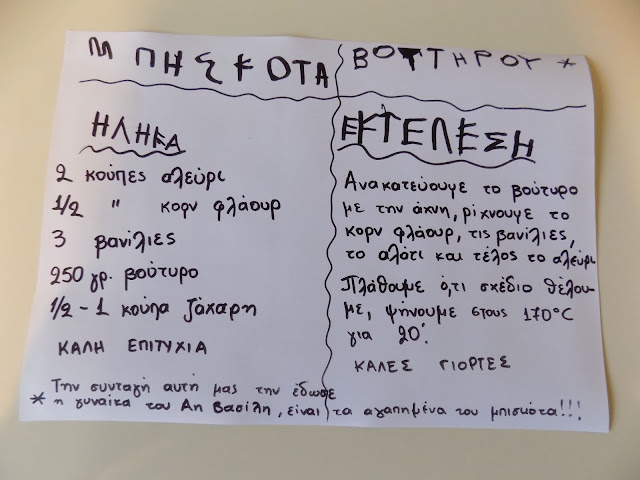 ΜΠΗΣΚΟΤΑ ΒΟΤΤΗΡΟΥ *
ΗΛΗΚΑ
2 κούπες αλεύρι
1/2 " κορν φλάουρ
3 βανίλιες
250 γρ. βούτυρο
1/2 - 1 κούπα ζάχαρη
ΚΑΛΗ ΕΠΙΤΥΧΙΑ
ΕΚΤΕΛΕΣΗ
Ανακατεύουμε το βούτυρο
με την άχνη, ρίχνουμε το
κορν φλάουρ, τις βανίλιες,
το αλάτι και τέλος το αλεύρι
Πλάθαμε ό,τι σχέδιο θέλου-
με, ψήνουμε στους 170°C
για 20'.
ΚΑΛΕΣ ΓΙΟΡΤΕΣ
Την συνταγή αυτή μας την έδωσε
* η γυναίκα του Αη Βασίλη, είναι τα αγαπημένα του μπισκότα!!!